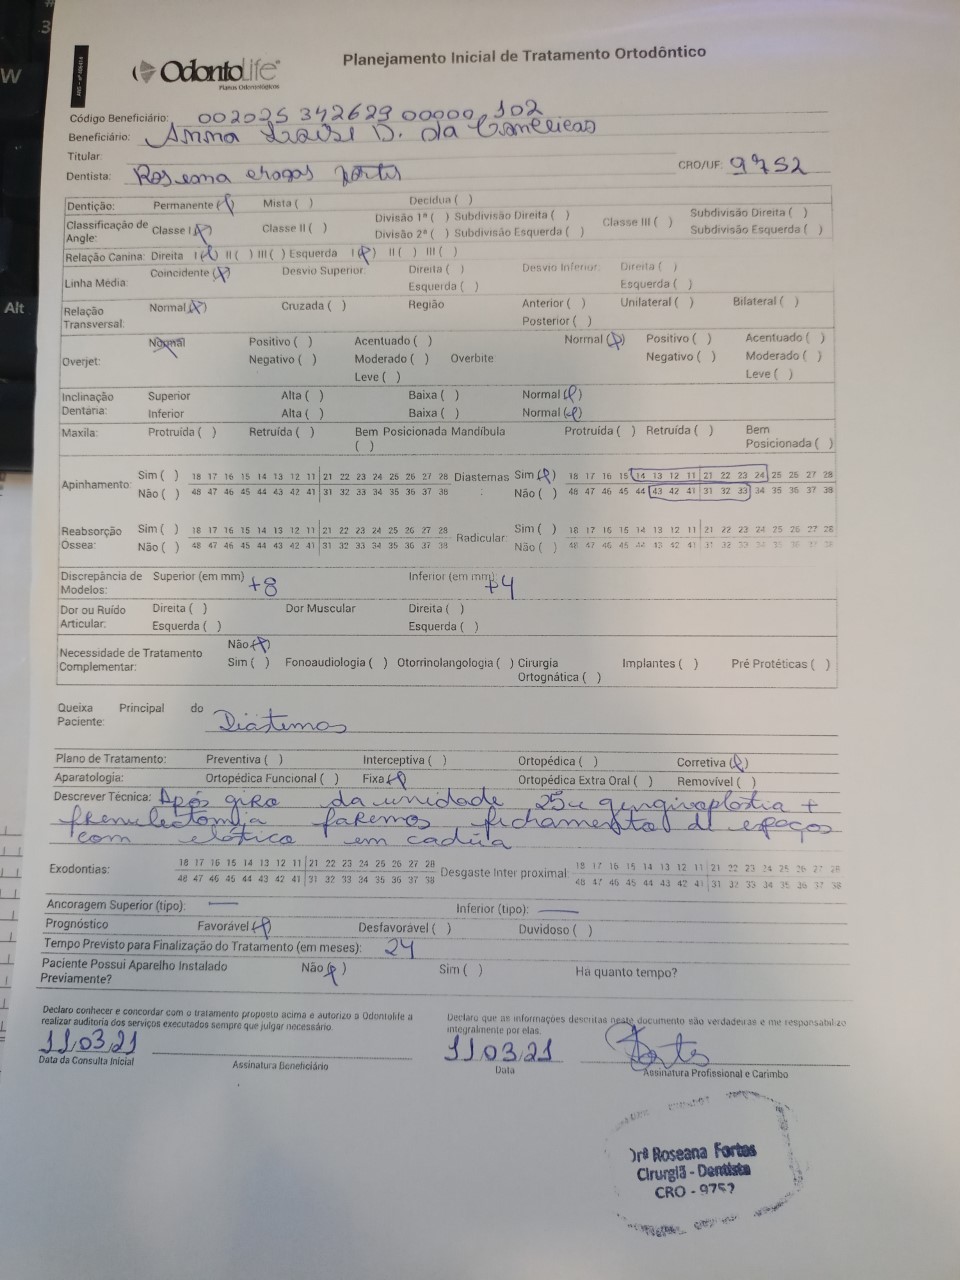 W
Alt
3
OdontoLife
Planos Odontológicos
Planejamento Inicial de Tratamento Ortodôntico
Código Beneficiário: 002025 342629 00000 102
Beneficiário: D. da
Titular:
Dentista: Roseana Fortes CRO/UF: 9752
Dentição: Permanente ( ) Mista ( ) Decídua ( )
Classificação de Angle: Classe I ( ) Classe II ( ) Divisão 1ª ( ) Subdivisão Direita ( ) Classe III ( ) Subdivisão Direita ( )
Divisão 2ª ( ) Subdivisão Esquerda ( ) Subdivisão Esquerda ( )
Relação Canina: Direita I ( ) II ( ) III ( ) Esquerda I ( ) II ( ) III ( )
Linha Média: Coincidente ( ) Desvio Superior: Direita ( ) Desvio Inferior: Direita ( )
Esquerda ( ) Esquerda ( )
Relação Transversal: Normal ( ) Cruzada ( ) Região Anterior ( ) Unilateral ( ) Bilateral ( )
Posterior ( )
Overjet: Normal Positivo ( ) Acentuado ( ) Normal ( ) Positivo ( ) Acentuado ( )
Negativo ( ) Moderado ( ) Overbite Negativo ( ) Moderado ( )
Leve ( ) Leve ( )
Inclinação Dentária: Superior Alta ( ) Baixa ( ) Normal ( )
Inferior Alta ( ) Baixa ( ) Normal ( )
Maxila: Protruída ( ) Retruída ( ) Bem Posicionada ( ) Mandíbula Protruída ( ) Retruída ( ) Bem Posicionada ( )
Apinhamento: Sim ( ) 18 17 16 15 14 13 12 11 21 22 23 24 25 26 27 28 Diastemas: Sim ( ) 18 17 16 15 14 13 12 11 21 22 23 24 25 26 27 28
Não ( ) 48 47 46 45 44 43 42 41 31 32 33 34 35 36 37 38 Não ( ) 48 47 46 45 44 43 42 41 31 32 33 34 35 36 37 38
Reabsorção Óssea: Sim ( ) 18 17 16 15 14 13 12 11 21 22 23 24 25 26 27 28 Radicular: Sim ( ) 18 17 16 15 14 13 12 11 21 22 23 24 25 26 27 28
Não ( ) 48 47 46 45 44 43 42 41 31 32 33 34 35 36 37 38 Não ( ) 48 47 46 45 44 43 42 41 31 32 33 34 35 36 37 38
Discrepância de Modelos: Superior (em mm) +8 Inferior (em mm): +4
Dor ou Ruído Articular: Direita ( ) Dor Muscular Direita ( )
Esquerda ( ) Esquerda ( )
Necessidade de Tratamento Complementar: Não ( )
Sim ( ) Fonoaudiologia ( ) Otorrinolangologia ( ) Cirurgia Ortognática ( ) Implantes ( ) Pré Protéticas ( )
Queixa Principal do Paciente: Diastemas
Plano de Tratamento: Preventiva ( ) Interceptiva ( ) Ortopédica ( ) Corretiva ( )
Aparatologia: Ortopédica Funcional ( ) Fixa ( ) Ortopédica Extra Oral ( ) Removível ( )
Descrever Técnica: Após giro da unidade 25 gengivoplastia +
frenulectomia faremos fichamento de espaços
com elástico em cadeia
Exodontias: 18 17 16 15 14 13 12 11 21 22 23 24 25 26 27 28 Desgaste Inter proximal: 18 17 16 15 14 13 12 11 21 22 23 24 25 26 27 28
48 47 46 45 44 43 42 41 31 32 33 34 35 36 37 38 48 47 46 45 44 43 42 41 31 32 33 34 35 36 37 38
Ancoragem Superior (tipo): — Inferior (tipo): —
Prognóstico Favorável ( ) Desfavorável ( ) Duvidoso ( )
Tempo Previsto para Finalização do Tratamento (em meses): 24
Paciente Possui Aparelho Instalado Previamente? Não ( ) Sim ( ) Há quanto tempo?
Declaro conhecer e concordar com o tratamento proposto acima e autorizo a Odontolife a
realizar auditoria dos serviços executados sempre que julgar necessário.
Declaro que as informações descritas neste documento são verdadeiras e me responsabilizo
integralmente por elas.
11.03.21
Data da Consulta Inicial
Assinatura Beneficiário
11.03.21
Data
Assinatura Profissional e Carimbo
Drª Roseana Fortes
Cirurgiã - Dentista
CRO - 9752